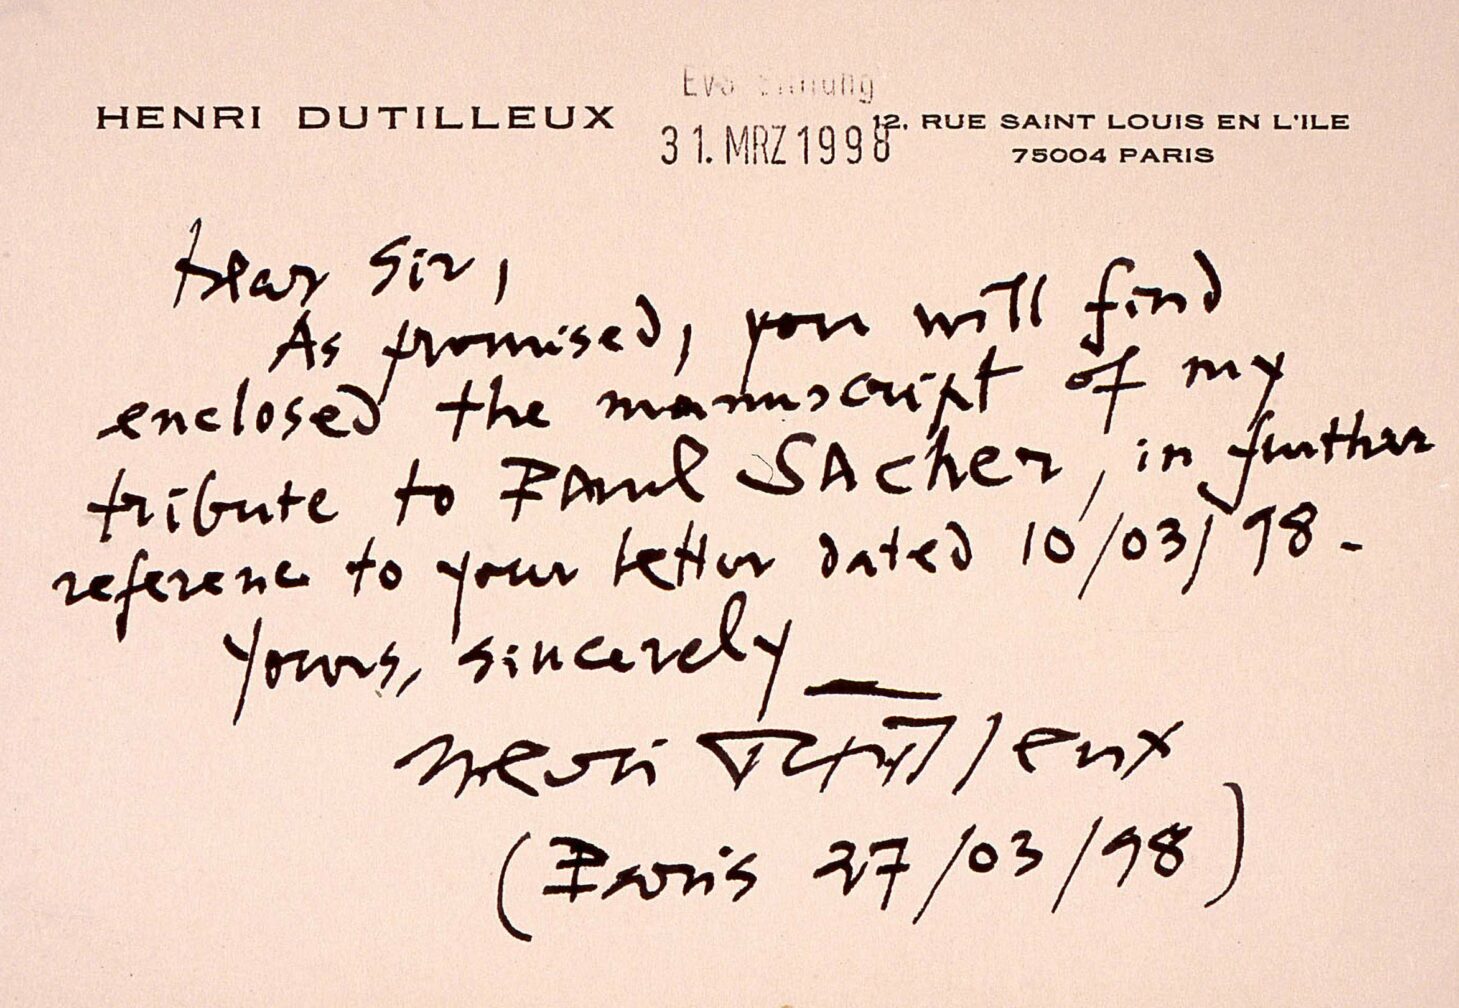 HENRI DUTILLEUX
12, RUE SAINT LOUIS EN L'ILE
75004 PARIS
31. MRZ 1998
Dear Sir,
As promised, you will find
enclosed the manuscript of my
tribute to PAul SAcher, in further
reference to your letter dated 10/03/98-
Yours, sincerely
Henri Dutilleux
(Paris 27/03/98)